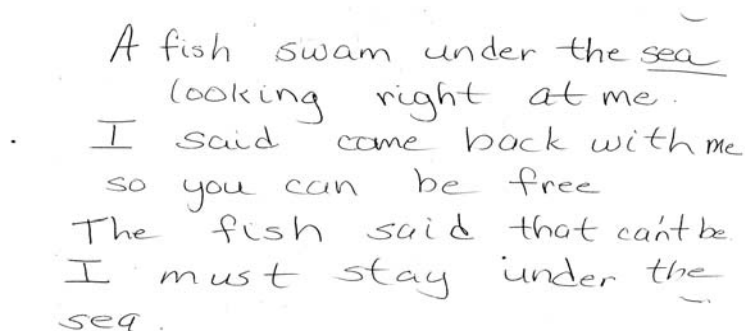 A fish swam under the sea
looking right at me.
I said come back with me
so you can be free
The fish said that can't be
I must stay under the
sea.